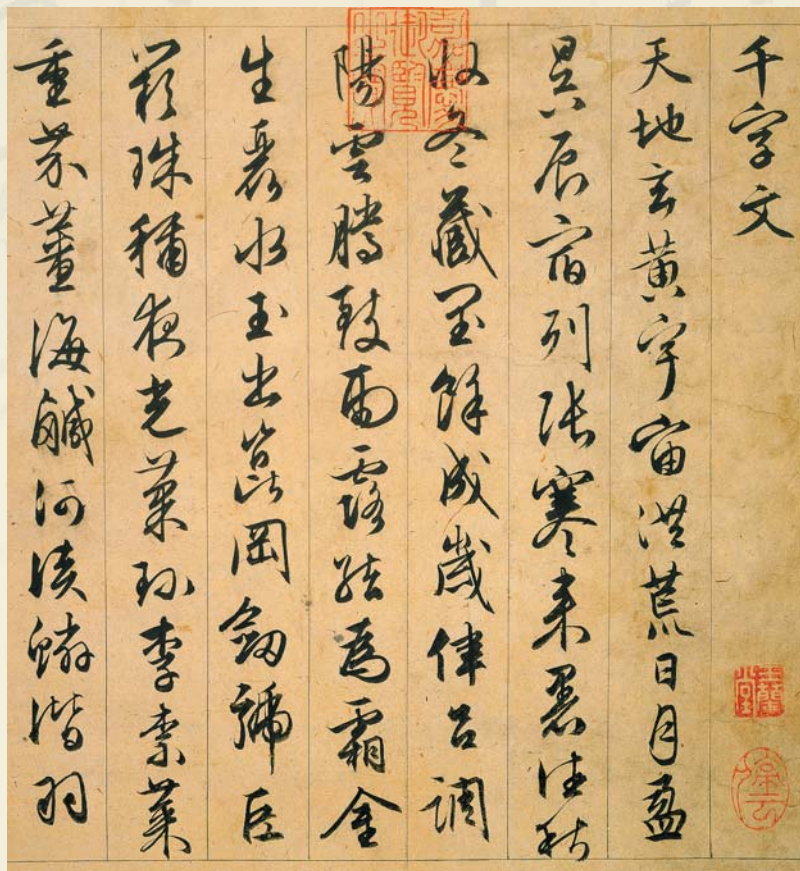 千字文
天地玄黃宇宙洪荒日月盈
昃辰宿列張寒來暑往秋
收冬藏閏餘成歲律呂調
陽雲騰致雨露結為霜金
生麗水玉出崑岡劒號巨
闕珠稱夜光菓珍李柰菜
重芥薑海鹹河淡鱗潛羽